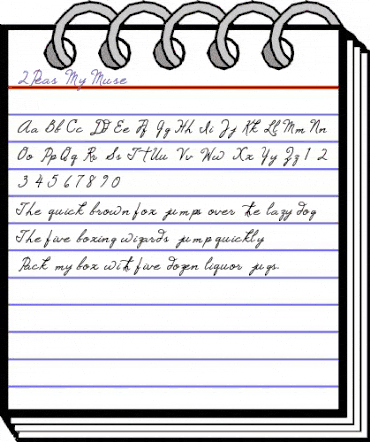 2Peas My Muse
Aa Bb Cc Dd Ee Ff Gg Hh Ii Jj Kk Ll Mm Nn
Oo Pp Qq Rr Ss Tt Uu Vv Ww Xx Yy Zz 1 2
3 4 5 6 7 8 9 0
The quick brown fox jumps over the lazy dog
The five boxing wizards jump quickly
Pack my box with five dozen liquor jugs.